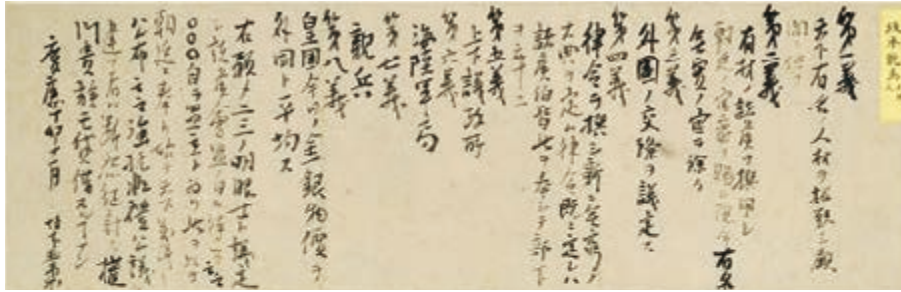 坂本龍馬
第一義
天下有名ノ人材ヲ招致シ顧
問ニ供フ
第二義
有材ノ諸侯ヲ撰用シ
朝廷ノ官爵ヲ賜ヒ現今有名
無実ノ官ヲ除ク
第三義
外國ノ交際ヲ議定ス
第四義
律令ヲ撰シ新ニ無窮ノ
大典ヲ定ム律令既ニ定レハ
諸侯伯皆此ヲ奉シテ部下
ヲ率ユ
第五義
上下議政所
第六義
海陸軍局
第七義
親兵
第八義
皇國今日ノ金銀物價ヲ
外國ト平均ス
右預メ二三ノ明眼士ト議定
シ諸侯會盟ノ日ヲ待ツテ云云
○○○自ラ盟主ト為リ此ヲ以テ
朝廷ニ奉リ始テ天下萬民ニ
公布云云強抗非禮公議ニ
違フ者ハ断然征討ス權
門貴族モ貸借スルナシ
慶應丁卯十一月 坂本直柔